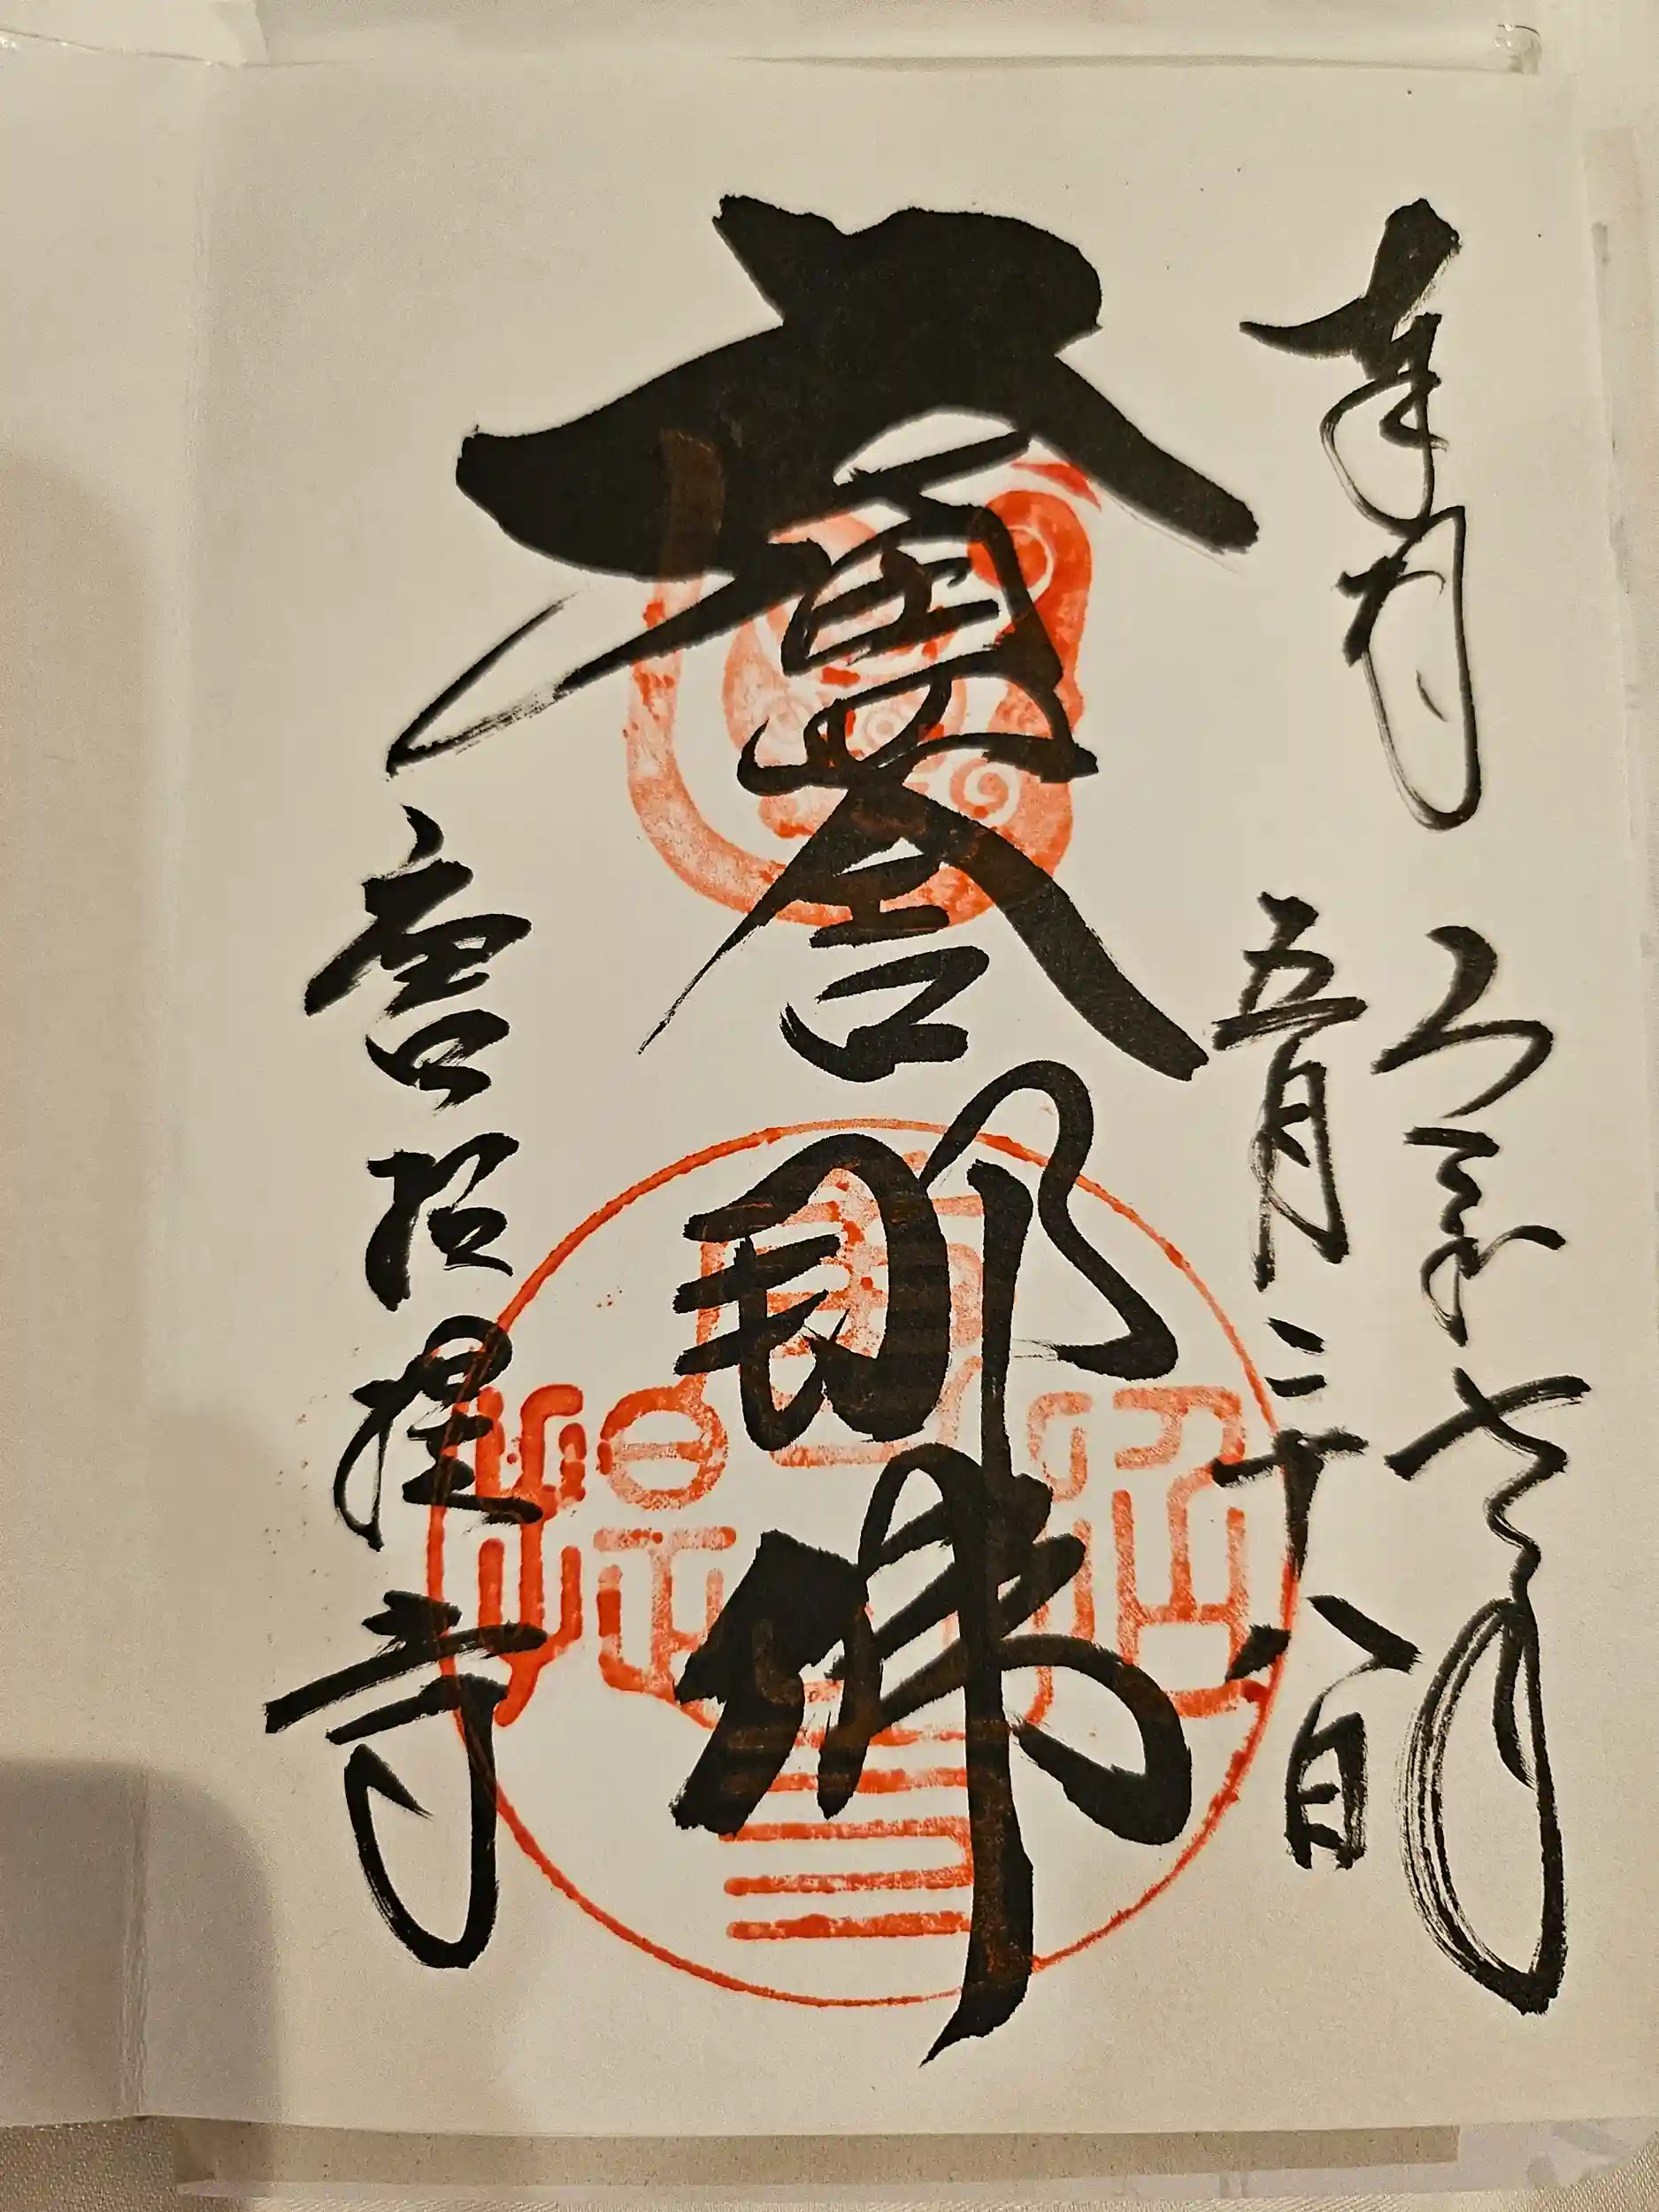 奉拝
令和六年
五月二十八日
盧舍那佛
唐招提寺